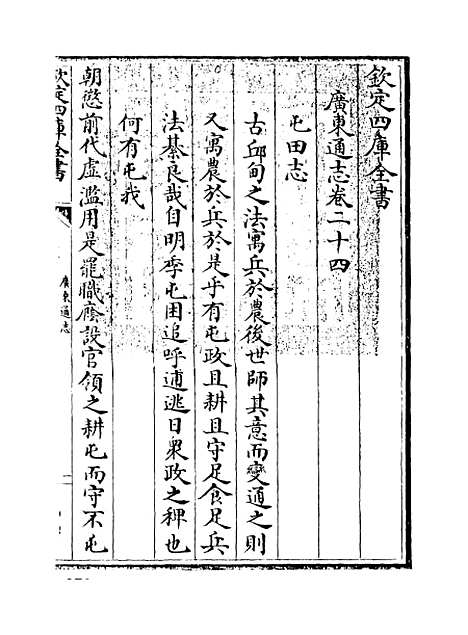 欽定四庫全書
廣東通志卷二十四
屯田志
古邱甸之法寓兵於農後世師其意而變通之則
又寓農於兵於是乎有屯政且耕且守足食足兵
法綦良哉自明季屯困追呼逋逃日衆政之稗也
何有屯我
朝慾前代虛濫用是罷職廢設官領之耕屯而守不屯
欽定四庫全書
廣東通志